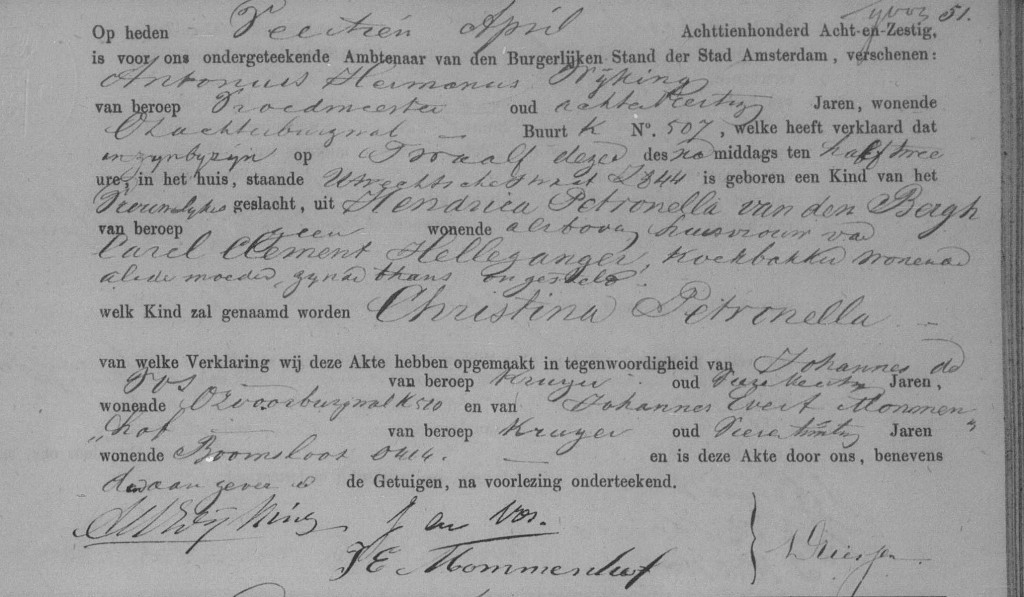 51.
Op heden Veertien April Achttienhonderd Acht-en-Zestig,
is voor ons ondergeteekende Ambtenaar van den Burgerlijken Stand der Stad Amsterdam, verschenen:
Antonius Hermanus
van beroep Vroedmeester oud achtenveertig Jaren, wonende
OZachterburgwal – Buurt K No. 507, welke heeft verklaard dat
in zynbyzyn op Twaalf dezer des na middags ten half twee
ure, in het huis, staande Utrechtschestraat 844 is geboren een Kind van het
Vrouwelyke geslacht, uit Hendrica Petronella van den Bergh
van beroep geen wonende alsboven huisvrouw van
Carel Clement Helleganger, Koekbakker wonende
als de moeder, zynde thans ongesteld.
welk Kind zal genaamd worden Christina Petronella –
van welke Verklaring wij deze Akte hebben opgemaakt in tegenwoordigheid van Johannes de
Vos van beroep Kruyer oud Jaren,
wonende OZvoorburgwal K510 en van Johannes Evert Mommen
"hof van beroep Kruyer oud Jaren
wonende Boomsloot – en is deze Akte door ons, benevens
den aangever de Getuigen, na voorlezing onderteekend.
Vos.
J E Mommenhof